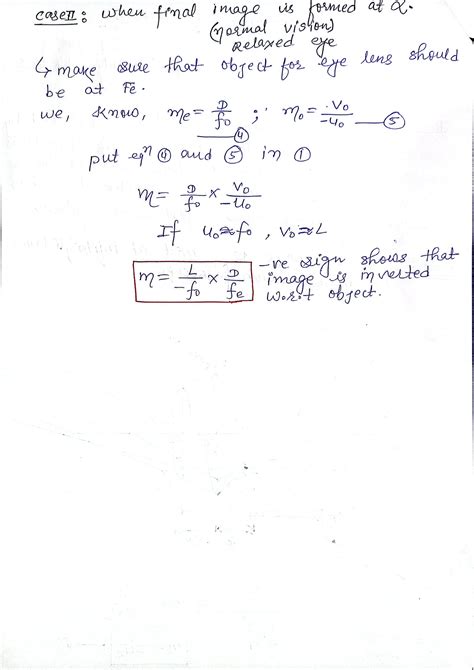 case II : when final image is formed at α.
(normal vision)
Relaxed eye
↳ make sure that object for eye lens should
be at Fe.
we, know, me = D/fo ④ ; mo = vo/-uo ⑤
put eqn ④ and ⑤ in ①
m = D/fo × vo/-uo
If uo≈fo, vo≈L
m = L/-fo × D/fe
-ve sign shows that
image is inverted
w.r.t object.